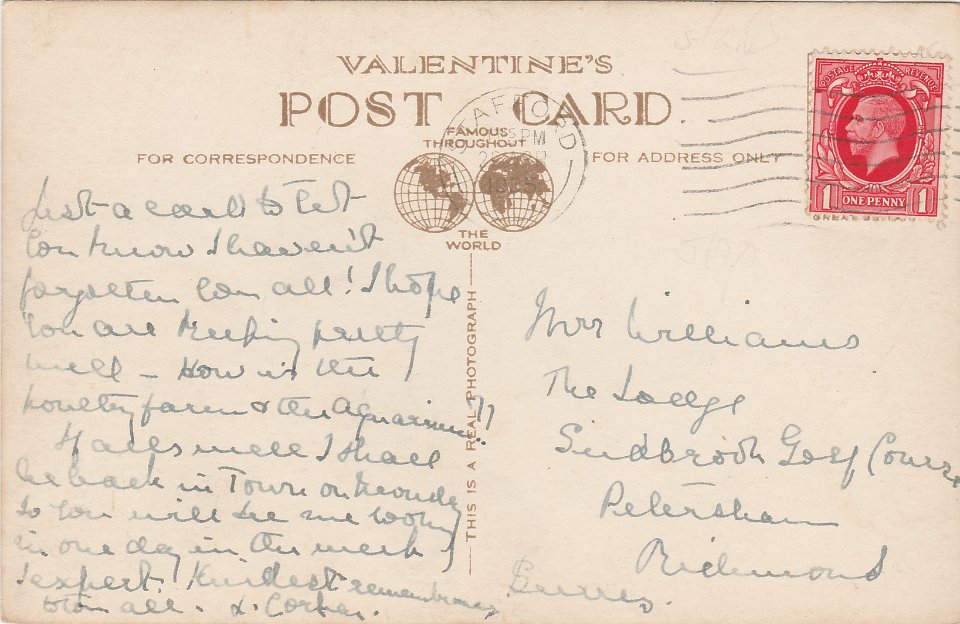 VALENTINE'S
POST CARD
FAMOUS
THROUGHOUT
THE
WORLD
FOR CORRESPONDENCE
FOR ADDRESS ONLY
STAFFORD
PM
1935
POSTAGE REVENUE
1 ONE PENNY 1
GREAT BRITAIN
THIS IS A REAL PHOTOGRAPH
Just a card to let
you know I haven't
forgotten you all! I hope
you are keeping pretty
well – How is the
poultry farm & the Aquarium??
If all's well I shall
be back in Town on Monday
so you will see me
in one day in the week
I expect. Kindest remembrances
to you all.
Mrs Williams
The Lodge
Sudbrook Golf Course,
Petersham
Richmond
Surrey.